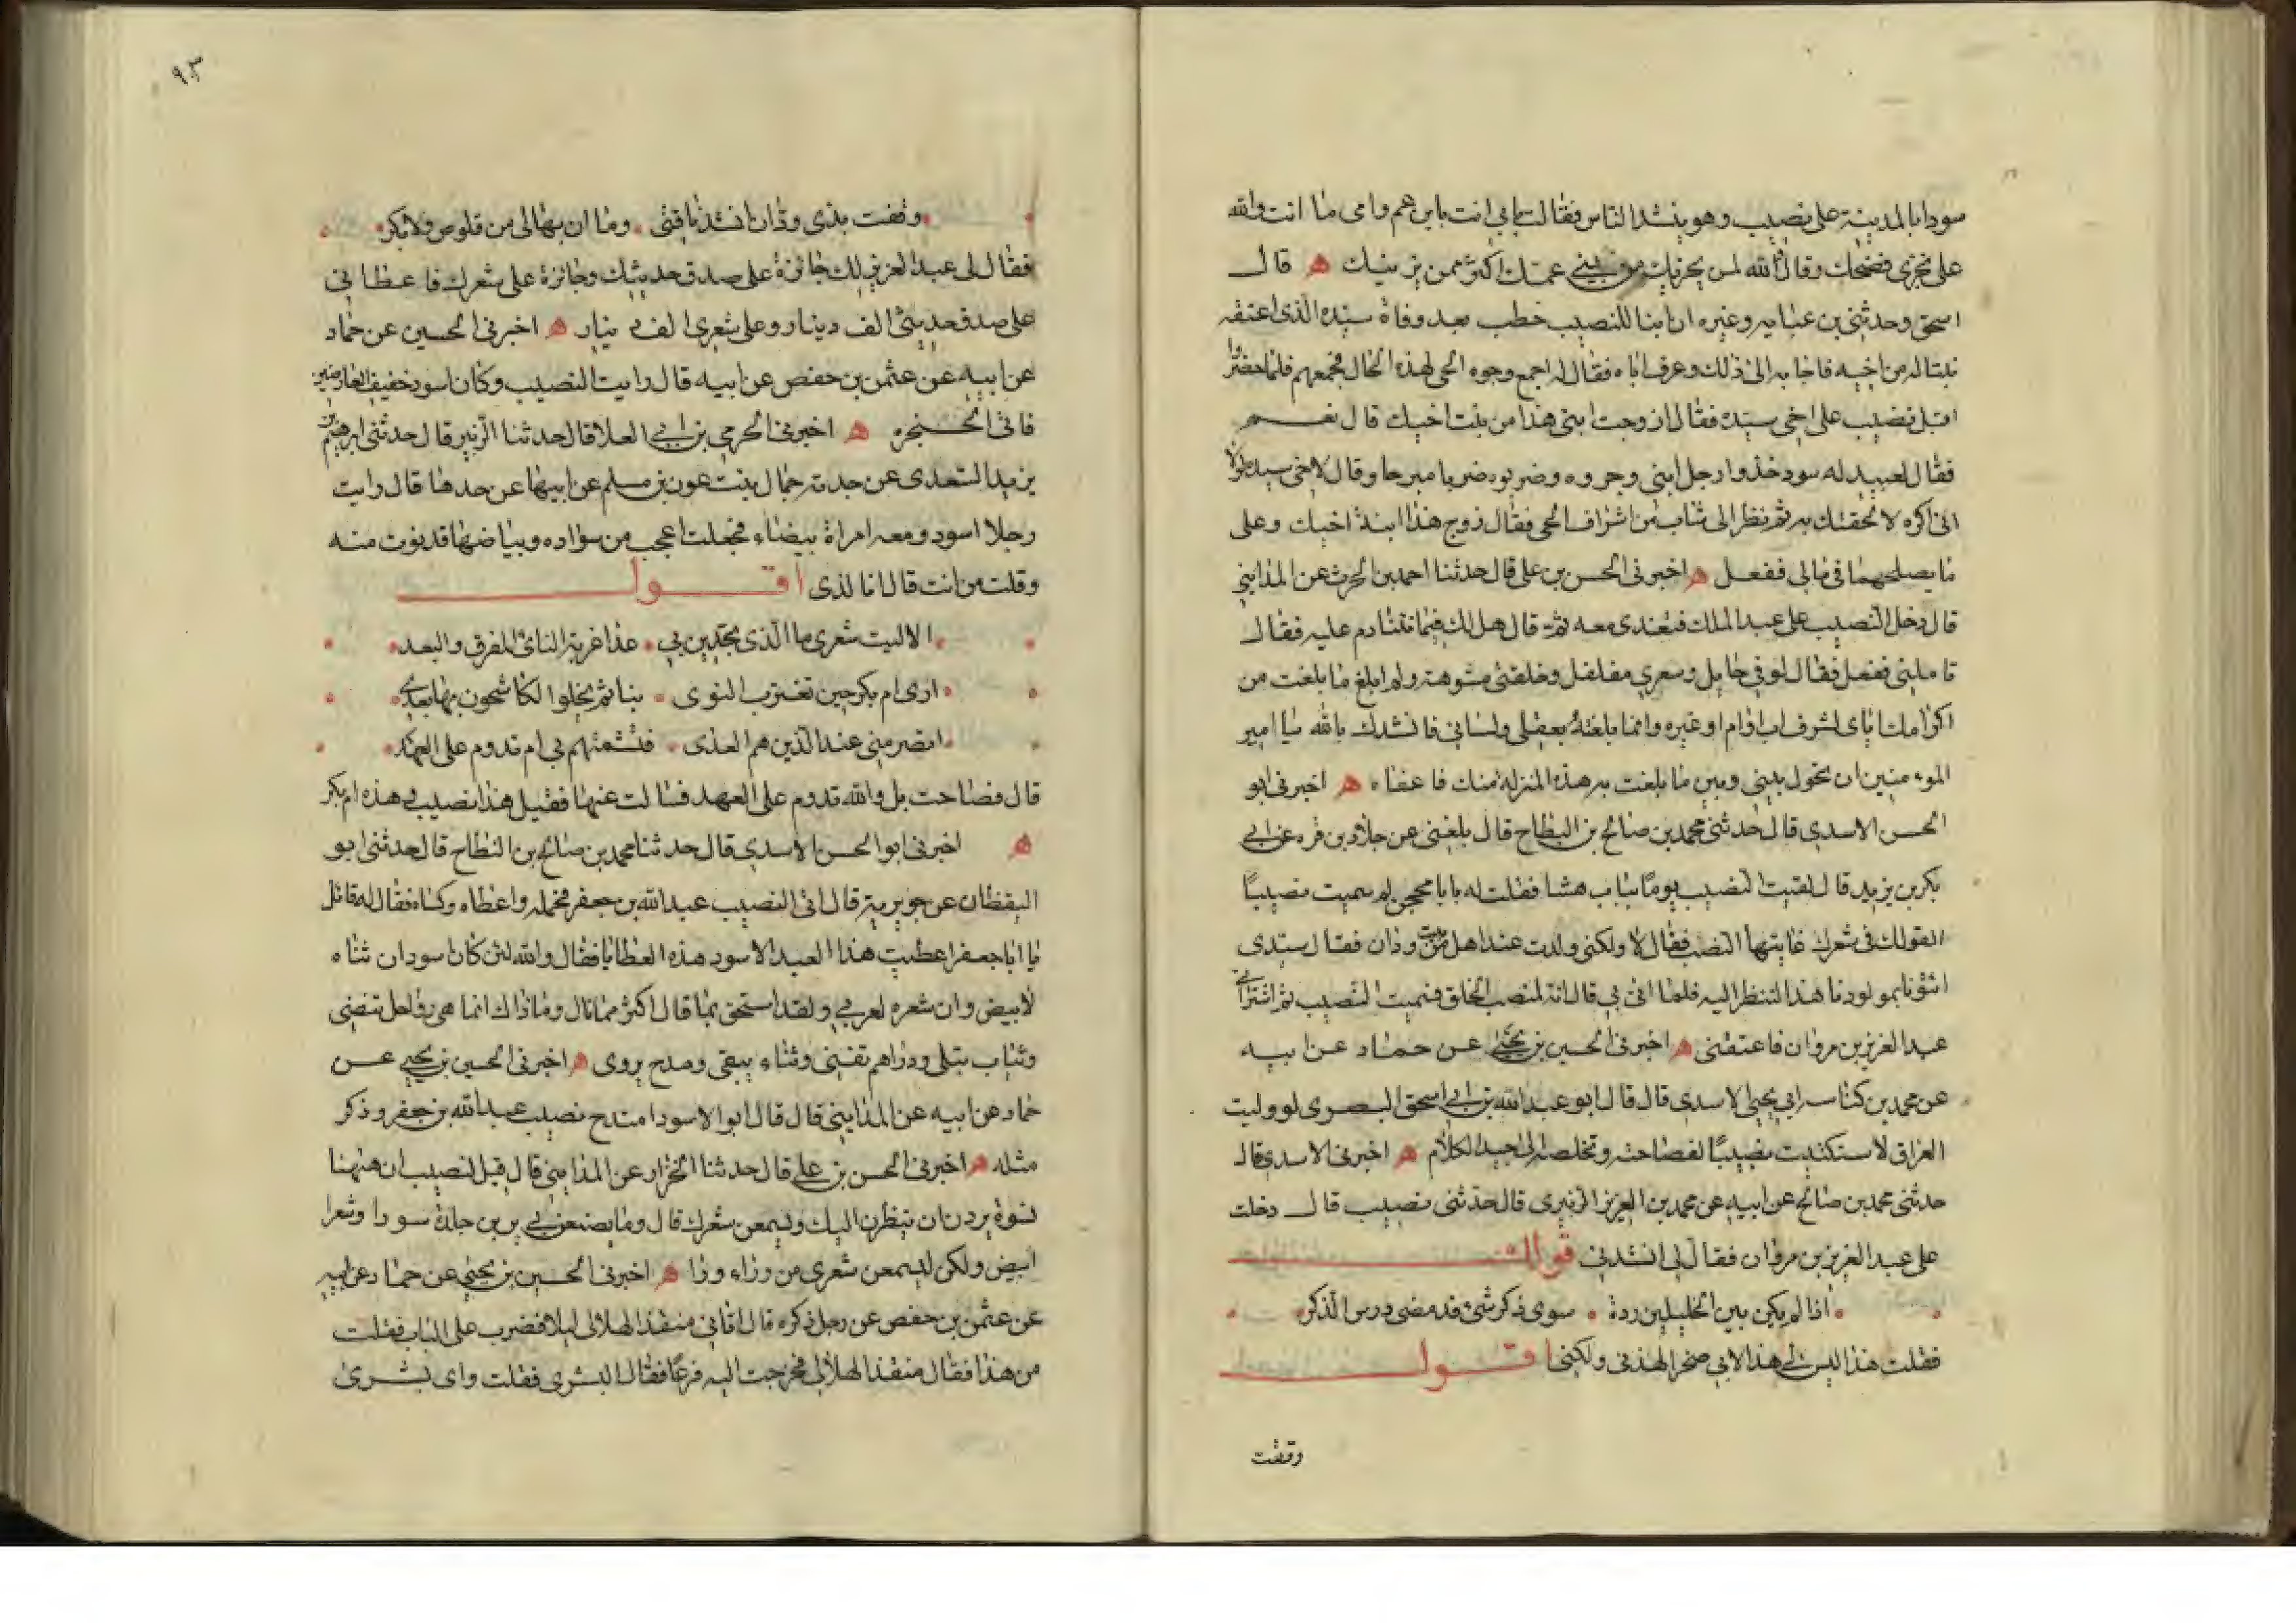 سودا بالمدينة على نصيب وهو ينشد الناس فقالت بابي انت يا بن عم وامي ما انت والله
على بخزى فضحك وقال والله لمن يخزيك من بني عمك اكثر ممن يزينك ه قال
اسحق وحدثني بن عبايه وغيره ان ابنا للنصيب خطب بعد وفاة سيده الذي اعتقه
بنتا له من اخيه فاجابه الى ذلك وعرف اباه فقال له اجمع وجوه الحي لهذه الحال فجمعهم فلما حضروا
اقبل نصيب على اخي سيده فقال ازوجت ابني هذا من بنت اخيك قال نعم
فقال لعبيد له سود خذوا رجل ابني وجروه وضربوه ضربا مبرحا وقال لاخي سيده لولا
اني اكره لالحقتك به ثم نظر الى شاب من اشراف الحي فقال زوج هذا ابنة اخيك وعلى
ما يصلحهما في مالي ففعل ه اخبرني الحسن بن علي قال حدثنا احمد بن الحرث عن المدايني
قال دخل النصيب على عبد الملك فتغدى معه ثم قال هل لك فيما نتنادم عليه فقال
تاملني ففعل فقال لوني حايل وشعري مفلفل وخلقتي مشوهة ولم ابلغ ما بلغت من
اكرامك اياى لشرف اب او ام او غيره وانما بلغته بعقلي ولساني فانشدك بالله يا امير
المومنين ان تحول بيني وبين ما بلغت به هذه المنزله منك فاعفاه ه اخبرني ابو
الحسن الاسدي قال حدثني محمد بن صالح بن النطاح قال بلغني عن خلاد بن قره عن ابي
بكر بن يزيد قال لقيت النصيب يوما بباب هشام فقلت له يا با محجن لم سميت نصيبا
القولك في شعرك عاينها النصب فقال لا ولكني ولدت عند اهل بيت من ودان فقال سيدي
ائتونا بمولودنا هذا لننظر اليه فلما اتى بي قال انه لمنصب الخلق فسميت النصيب ثم اشتراني
عبد العزيز بن مروان فاعتقني ه اخبرني الحسين بن يحيى عن حماد عن ابيه
عن محمد بن كناسه ابي يحيى الاسدي قال قال ابو عبد الله بن ابي اسحق البصري لو وليت
العراق لاستكتبت نصيبا لفصاحته وتخلصه الى جيد الكلام ه اخبرني الاسدي قال
حدثني محمد بن صالح عن ابيه عن محمد بن العزيز الزهري قال حدثني نصيب قال دخلت
على عبد العزيز بن مروان فقال لي انشدني قولك
اذا لم يكن بين الخليلين ردة سوى ذكر شئ قد مضى درس الذكر
فقلت هذا ليس لي هذا لابي صخر الهذلي ولكني اقول
وقفت
٩٣
وقفت بذي ودان انشد ناقتي وما ان بها لي من قلوص ولا بكر
فقال لي عبد العزيز لك جائزة على صدق حديثك وجائزة على شعرك فاعطاني
على صدق حديثي الف دينار وعلى شعري الف دينار ه اخبرني الحسين عن حماد
عن ابيه عن عثمن بن حفص عن ابيه قال رايت النصيب وكان اسود خفيف العارضين
ناتى الحنجره ه اخبرني الحرمي بن ابي العلا قال حدثنا الزبير قال حدثني ابرهيم بن
يزيد السعدى عن جدته جمال بنت عون بن مسلم عن ابيها عن جدها قال رايت
رجلا اسود ومعه امراة بيضاء فجعلت اعجب من سواده وبياضها فدنوت منه
وقلت من انت قال انا لذى اقول
الا ليت شعري ما الذي تجدين بي غدا غربة النائ المفرق والبعد
ارى ام بكر حين تغترب النوى بنا ثم يخلوا الكاشحون بها بعدي
اتصرمني عند الذين هم العدى فتشمتهم بي ام تدوم على العهد
قال فصاحت بل والله تدوم على العهد فسالت عنها فقيل هذا نصيب وهذه ام بكر
ه اخبرني ابو الحسن الاسدي قال حدثنا محمد بن صالح بن النطاح قال حدثني ابو
اليقظان عن جويرية قال اتى النصيب عبد الله بن جعفر فحمله واعطاه وكساه فقال له قائل
يا ابا جعفر اعطيت هذا العبد الاسود هذه العطايا فقال والله لئن كان اسود ان ثناه
لابيض وان شعره لعربي ولقد استحق بما قال اكثر مما نال وما ذاك انما هي رواحل تنضى
وثياب تبلى ودراهم تفنى وثناء يبقى ومدح يروى ه اخبرني الحسين بن يحيى عن
حماد عن ابيه عن المدايني قال قال ابو الاسود امتدح نصيب عبد الله بن جعفر وذكر
مثله ه اخبرني الحسن بن علي قال حدثنا الخزاز عن المدايني قال قيل لنصيب ان هنهنا
نسوة يردن ان ينظرن اليك ويسمعن شعرك قال وما يصنعن بي يرين جلدة سودا وشعرا
ابيض ولكن ليسمعن شعري من وراء ورا ه اخبرني الحسين بن يحيى عن حماد عن ابيه
عن عثمن بن حفص عن رجل ذكره قال اتاني منقذ الهلالي ليلا فضرب على الباب فقلت
من هذا فقال منقذ الهلالي فخرجت اليه فزعا فقال البشرى فقلت واى بشرى